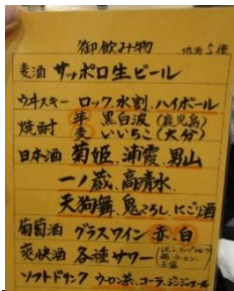 御飲み物
麦酒 サッポロ生ビール
ウヰスキー ロック、水割、ハイボール
焼酎 芋 黒白波(鹿児島)
麦 いいちこ(大分)
日本酒 菊姫、浦霞、男山
一ノ蔵、高清水
天狗舞、鬼ころし、にごり酒
葡萄酒 グラスワイン 赤、白
爽快酒 各種サワー
ソフトドリンク ウーロン茶、コーラ、ジンジャエール